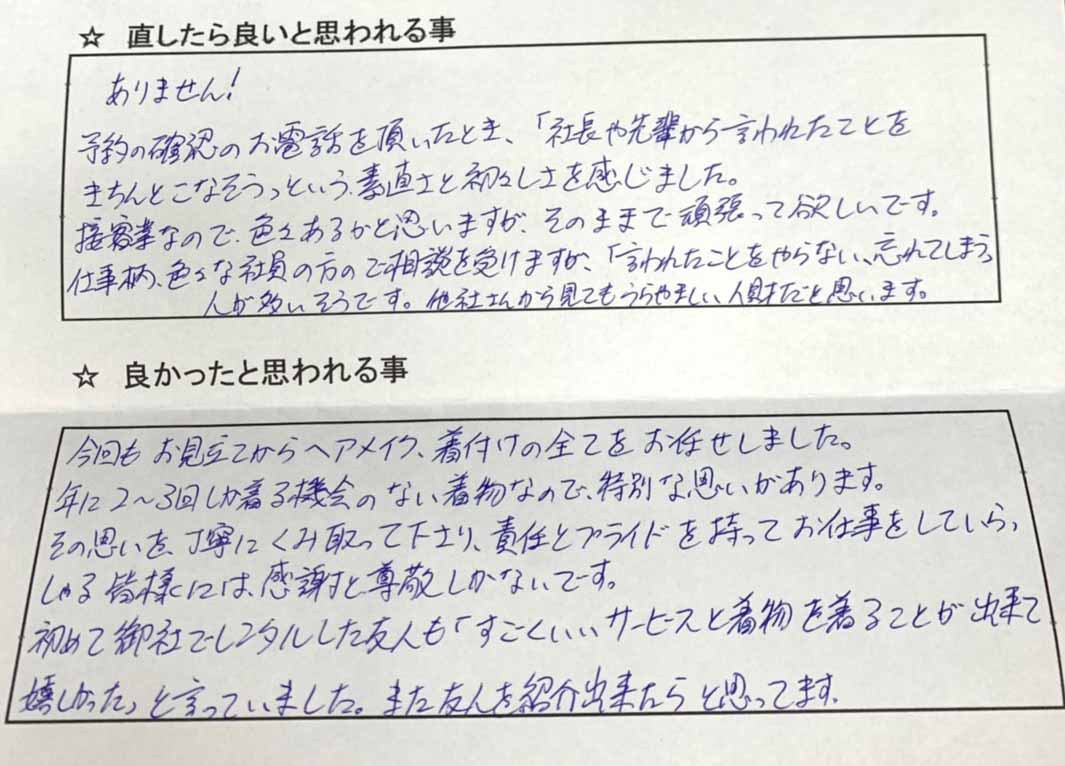 ☆ 直したら良いと思われる事
ありません!
予約の確認のお電話を頂いたとき、「社長や先輩から言われたことを
きちんとこなそうっという、素直さと初々しさを感じました。
接客業なので、色々あるかと思いますが、そのままで頑張って欲しいです。
仕事柄、色々な社員の方のご相談を受けますが、「言われたことをやらない、忘れてしまう」
人が多いそうです。他社さんから見てもうらやましい人財だと思います。
☆ 良かったと思われる事
今回もお見立てからヘアメイク、着付けの全てをお任せしました。
年に2〜3回しか着る機会のない着物なので、特別な思いがあります。
その思いを、丁寧にくみ取って下さり、責任とプライドを持ってお仕事をしていらっ
しゃる皆様には、感謝と尊敬しかないです。
初めて御社でレンタルした友人も「すごくいいサービスと着物を着ることが出来て
嬉しかった」と言っていました。また友人を紹介出来たらと思ってます。